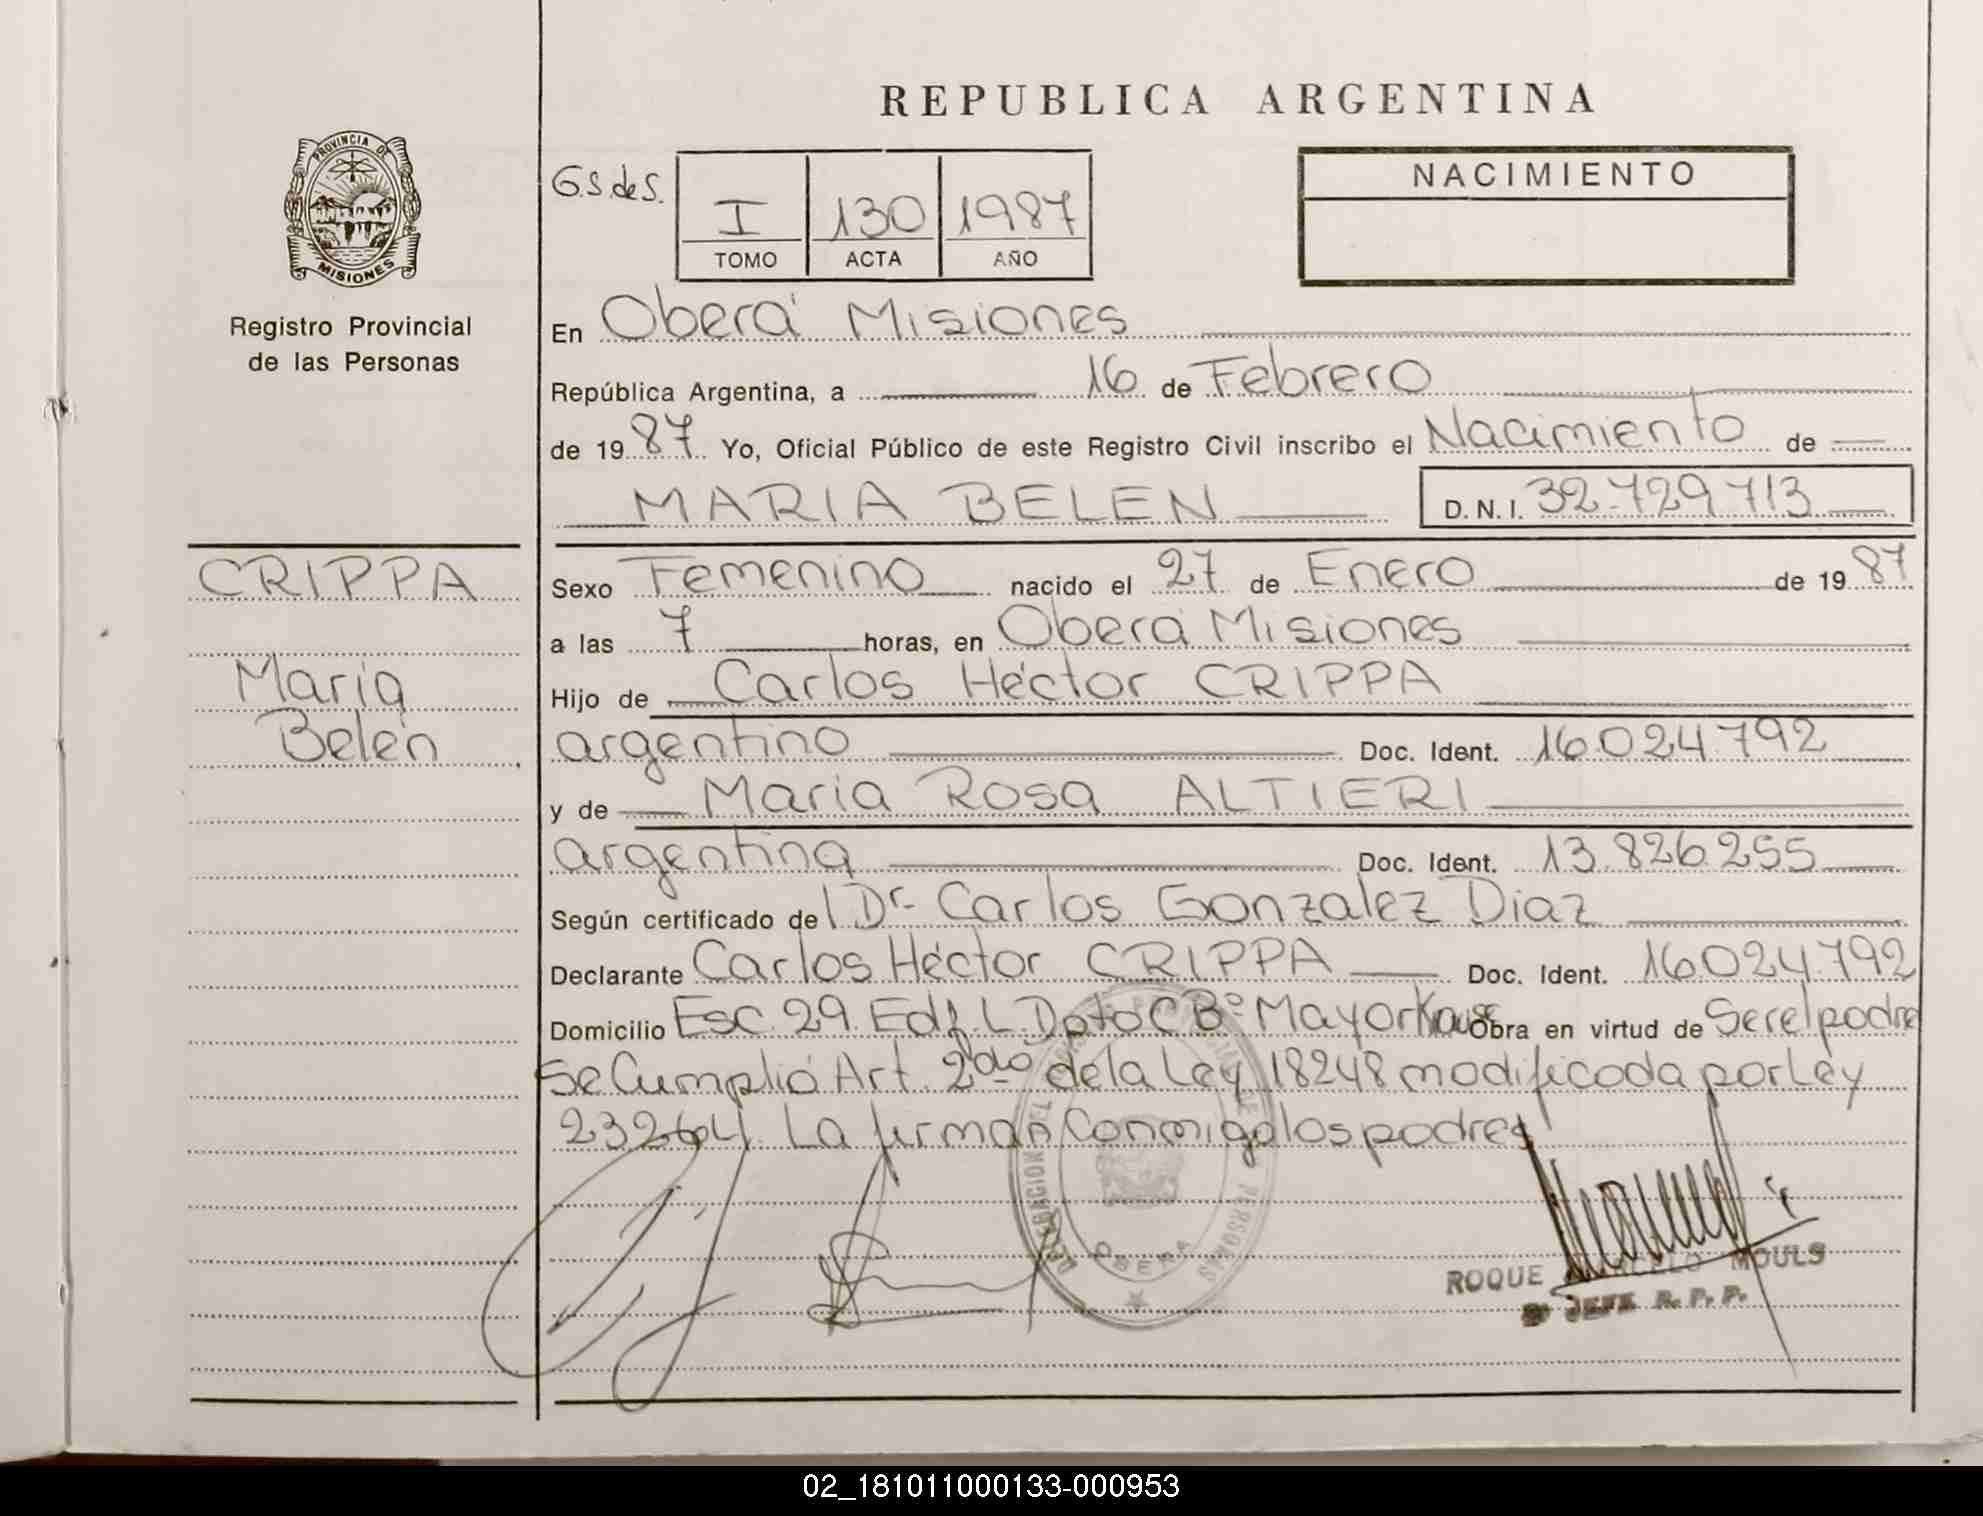 REPUBLICA ARGENTINA
PROVINCIA DE
MISIONES
Registro Provincial
de las Personas
G.S.deS.
I 130 1987
TOMO ACTA AÑO
NACIMIENTO
En Oberá Misiones
República Argentina, a 16 de Febrero
de 1987 Yo, Oficial Público de este Registro Civil inscribo el Nacimiento de
MARIA BELEN D.N.I. 32.729.713
CRIPPA
María
Belén
Sexo Femenino nacido el 27 de Enero de 1987
a las 7 horas, en Oberá Misiones
Hijo de Carlos Héctor CRIPPA
argentino Doc. Ident. 16.024.792
y de María Rosa ALTIERI
argentina Doc. Ident. 13.826.255
Según certificado de Dr. Carlos Gonzalez Diaz
Declarante Carlos Héctor CRIPPA Doc. Ident. 16.024.792
Domicilio Esc. 29. Edf. L. Dpto C Bº Mayor Obra en virtud de Ser el padre
Se Cumplió Art. 2do de la Ley 18248 modificada por Ley
23264. La firman Conmigo los padres
DELEGACION DEL DE PERSONAS
OBERA
ROQUE MOULS
JEFE R. P. P.
02_181011000133-000953